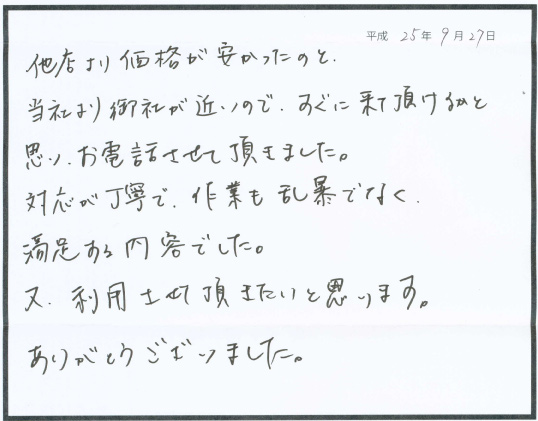 平成 25年 9月27日
他店より価格が安かったのと、
当社より御社が近いので、すぐに来て頂けるかと
思い、お電話させて頂きました。
対応が丁寧で、作業も乱暴でなく、
満足する内容でした。
又、利用させて頂きたいと思います。
ありがとうございました。